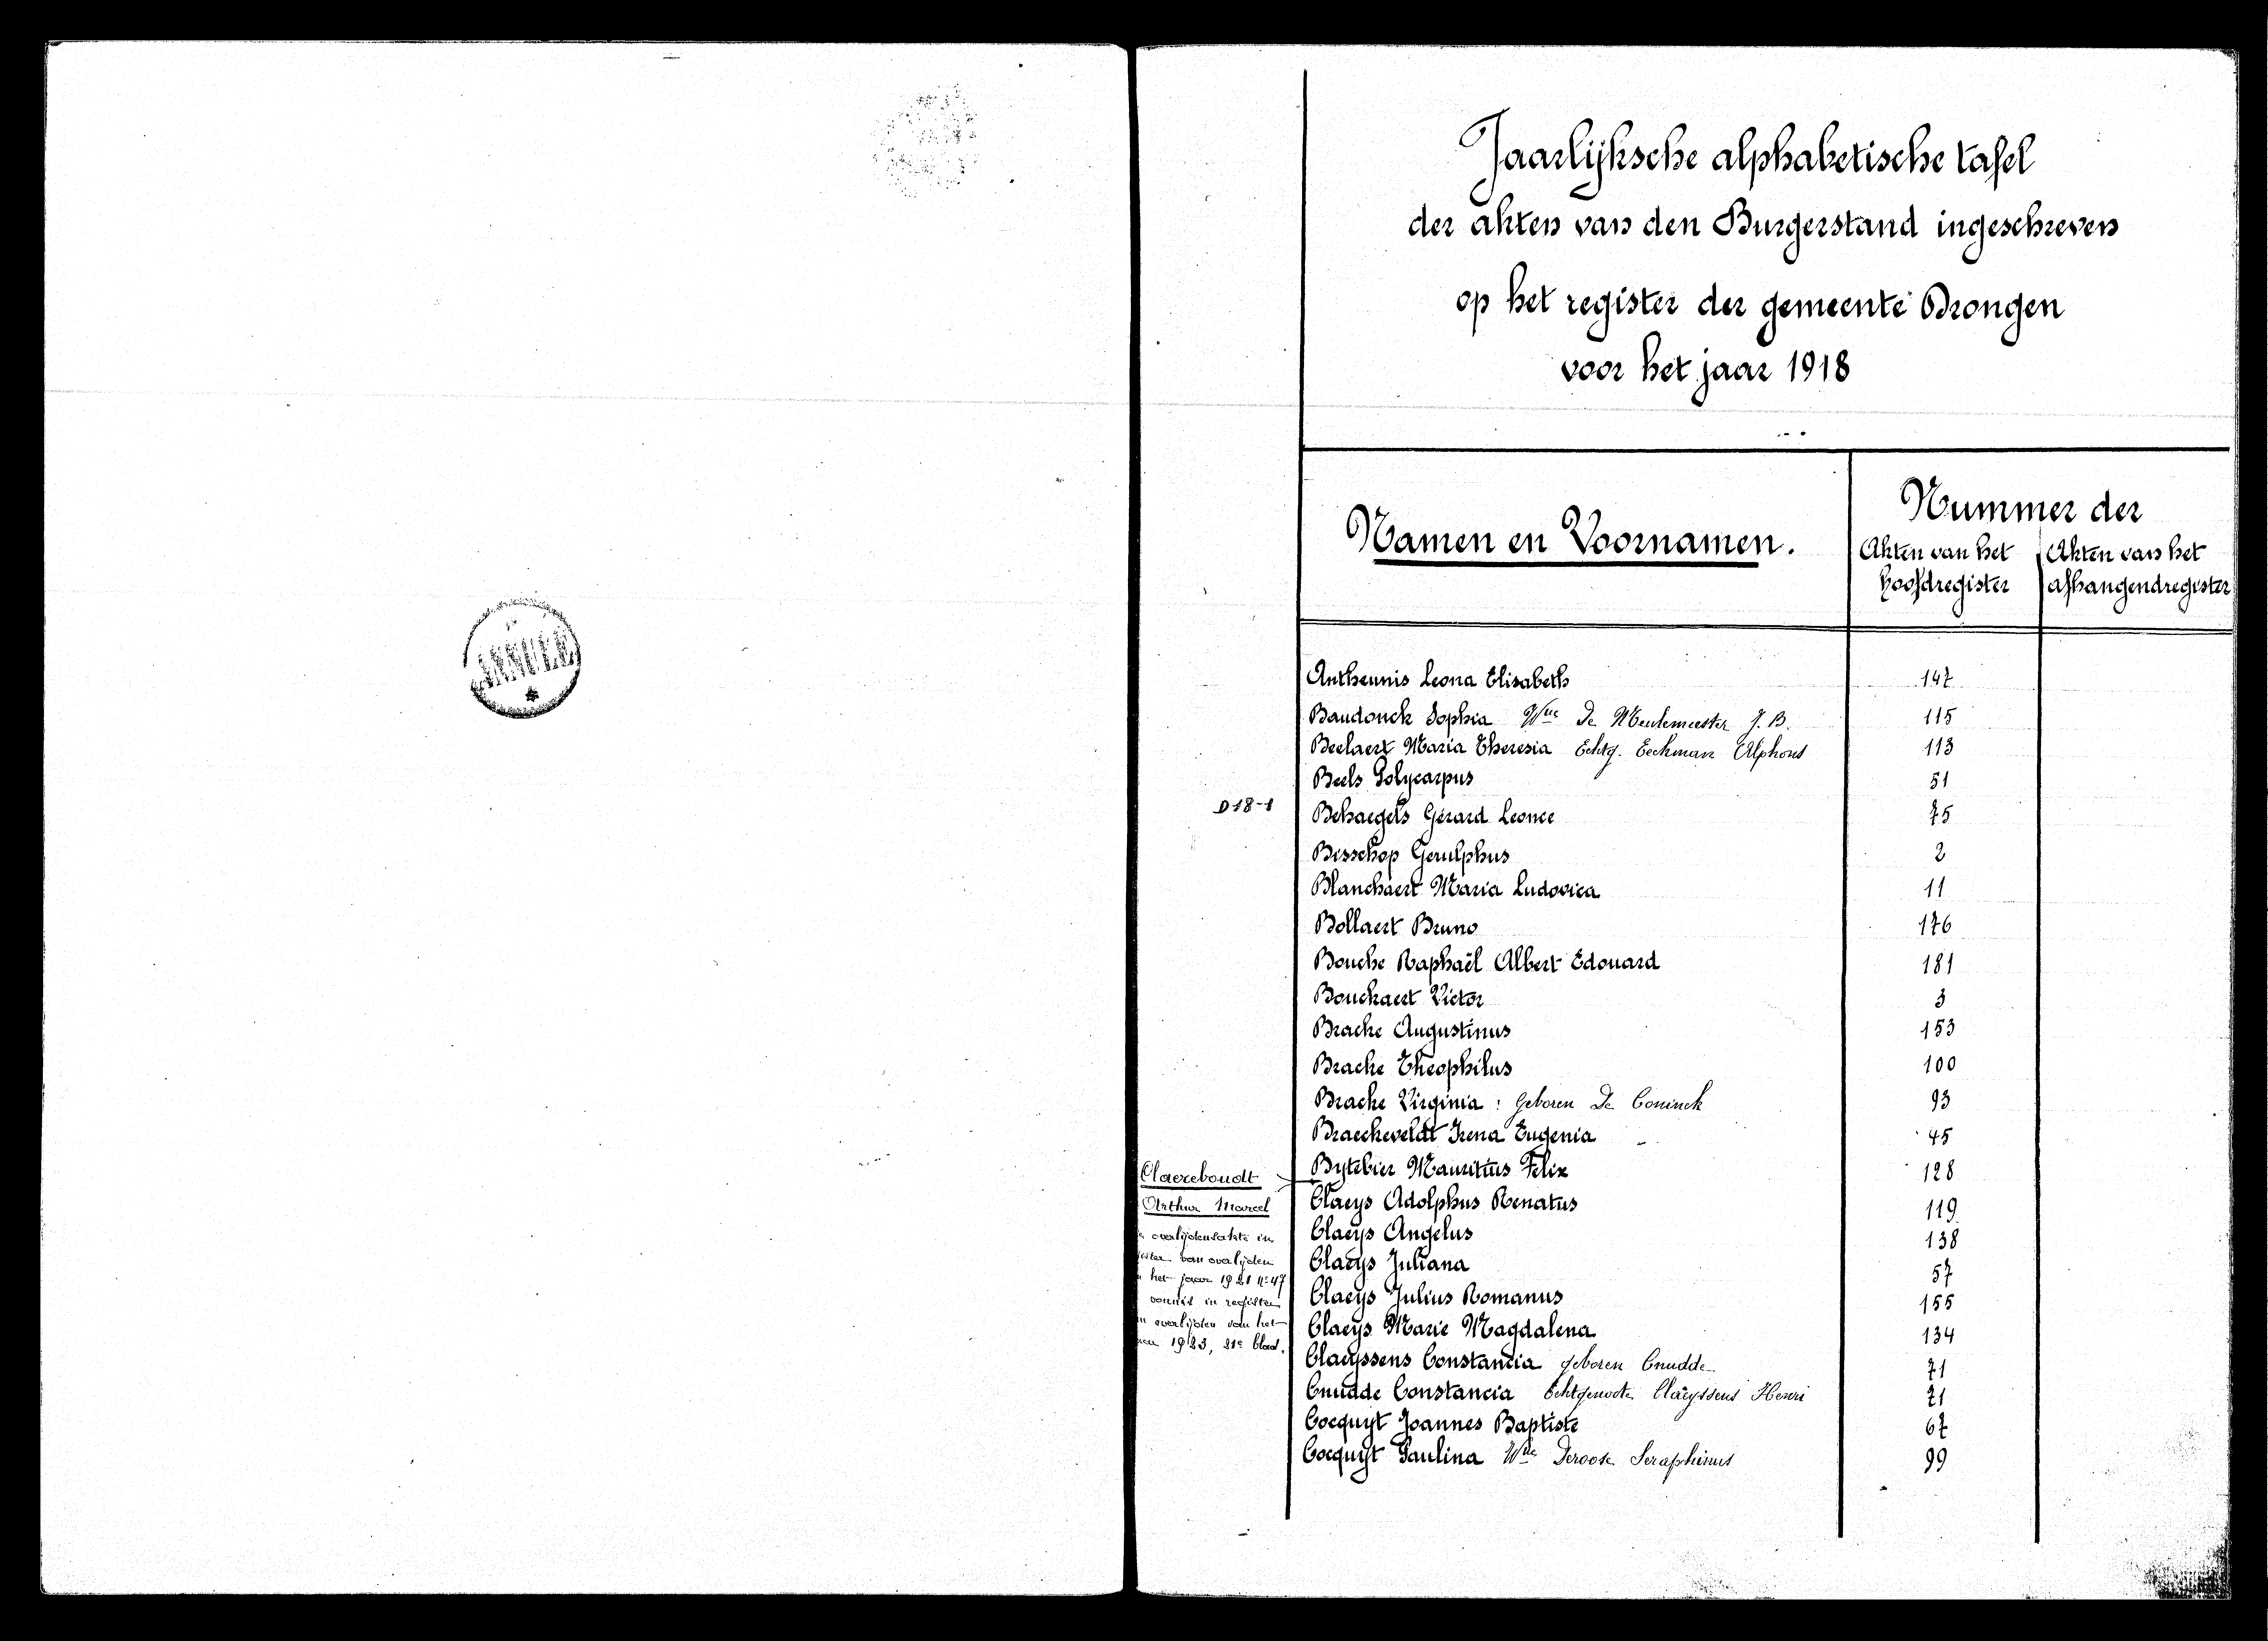 ANNULE
Jaarlijksche alphabetische tafel
der akten van den Burgerstand ingeschreven
op het register der gemeente Drongen
voor het jaar 1918
Namen en Voornamen.
Nummer der
Akten van het hoofdregister
Akten van het afhangendregister
Antheunis Leona Elisabeth 147
Baudonck Sophia Wue De Meulemeester J. B. 115
Beelaert Maria Theresia Echtg. Eeckman Alphons 113
Beels Polycarpus 51
D 18-1 Behaegels Gérard Leonce 75
Bisschop Gerulphus 2
Blanchaert Maria Ludovica 11
Bollaert Bruno 176
Bouche Raphaël Albert Edouard 181
Bouckaert Victor 3
Bracke Augustinus 153
Bracke Theophilus 100
Bracke Virginia : geboren De Coninck 93
Braeckeveldt Irena Eugenia 45
Bytebier Mauritius Felix 128
Claeys Adolphus Renatus 119
Claeys Angelus 138
Claeys Juliana 57
Claeys Julius Romanus 155
Claeys Marie Magdalena 134
Claeyssens Constancia geboren Cnudde 71
Cnudde Constancia Echtgenoote Claeyssens Henri 71
Cocquyt Joannes Baptiste 67
Cocquyt Paulina Wue Deroose Seraphinus 99
Claereboudt
Arthur Marcel
overlijdensakte in
van overlijden
het jaar 1921 No 47
vonnis in register
overlijden van het
1923, 21e blad.